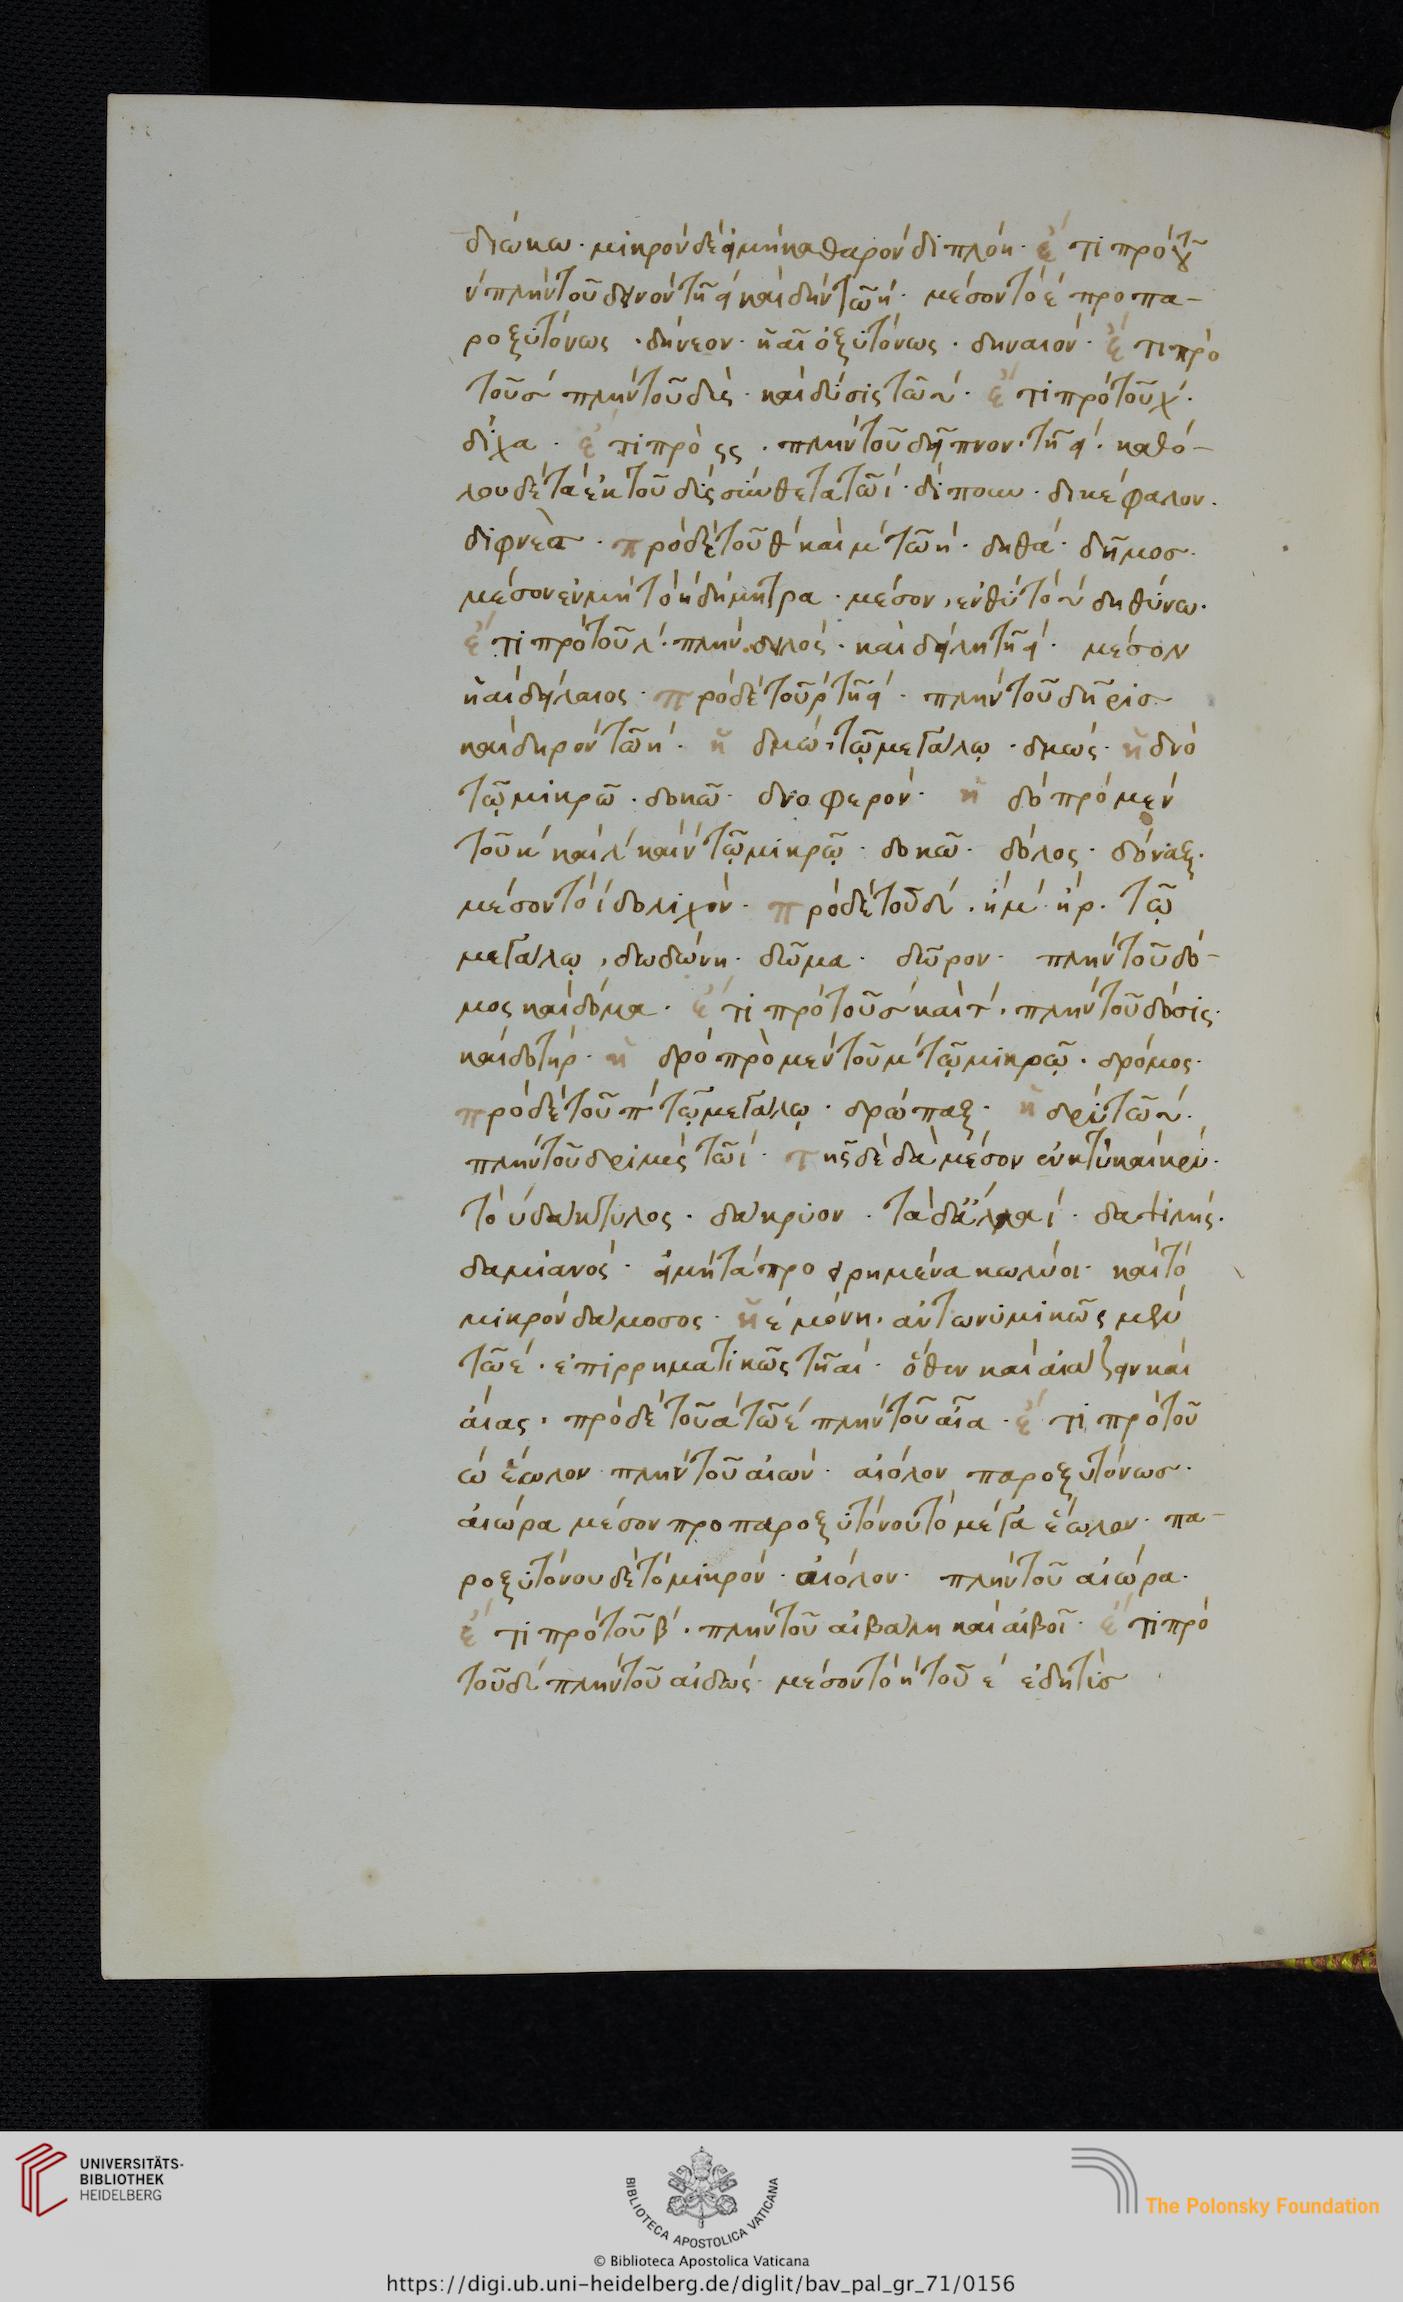 διώκω · μικρὸν δὲ εἰ μὴ καθαρὸν διπλόη · ἔτι πρὸ τοῦ
ν πλὴν τοῦ δεινὸν τῆ ει καὶ δὴν τῶ η · μέσον τὸ ε προπα-
ροξυτόνως · δήνεον · ἢ αι ὀξυτόνως · δηναιόν · ἔτι πρὸ
τοῦ σ πλὴν τοῦ δὶς · καὶ δύσις τῶ υ · ἔτι πρὸ τοῦ χ ·
δίχα · ἔτι πρὸ · πλὴν τοῦ δεῖπνον · τῆ ει · καθό-
λου δὲ τὰ ἐκ τοῦ δὶς σύνθετα τῶ ι · δίπουν · δικέφαλον ·
διφυέα · πρὸ δὲ τοῦ θ καὶ μ τῶ η · δηθά · δῆμος ·
μέσον ἐν μὴ τὸ η δήμητρα · μέσον, ἐν θυ τὸ υ δηθύνω ·
ἔτι πρὸ τοῦ λ · πλὴν δειλός · καὶ δείλη τῆ ει · μέσον
ἢ αι δείλαιος · πρὸ δὲ τοῦ ρ τῆ ει · πλὴν τοῦ δῆρις
καὶ δηρὸν τῶ η · ἡ δμώ · τῷ μεγάλῳ · δμώς · ἡ δνό
τῷ μικρῶ · δοκῶ · δνοφερόν · ἡ δό πρὸ μὲν
τοῦ κ καὶ λ καὶ ν τῷ μικρῷ · δοκῶ · δόλος · δόναξ ·
μέσον τὸ ι δολιχόν · πρὸ δὲ τοῦ δ · ἢ μ · ἢ ρ · τῷ
μεγάλῳ, δωδώνη · δῶμα · δῶρον · πλὴν τοῦ δό-
μος καὶ δόμα · ἔτι πρὸ τοῦ σ καὶ τ · πλὴν τοῦ δόσις ·
καὶ δοτήρ · ἡ δρό πρὸ μὲν τοῦ μ τῷ μικρῷ · δρόμος ·
πρὸ δὲ τοῦ π τῷ μεγάλῳ · δρώπαξ · ἡ δρύ τῶ υ ·
πλὴν τοῦ δριμὺς τῶ ι · τῆς δὲ δα μέσον ἐν κτυ καὶ κρυ ·
τὸ υ δάκτυλος · δάκρυον · τὰ δ' ἄλλα ι · δαψιλής ·
δαμιανός · εἰ μὴ τὰ προειρημένα κωλύοι · καὶ τὸ
μικρὸν δάμοσος · ἡ ε μόνη · ἀντωνυμικῶς μὲν
τῶ ε · ἐπιρρηματικῶς τῆ αι · ὅθεν καὶ αἰάζειν καὶ
αἴας · πρὸ δὲ τοῦ α τῶ ε πλὴν τοῦ αἶα · ἔτι πρὸ τοῦ
ω ἕωλον πλὴν τοῦ αἰών · αἰόλον παροξυτόνως ·
αἰώρα μέσον προπαροξυτόνου τὸ μέγα ἕωλον · πα-
ροξυτόνου δὲ τὸ μικρόν · αἰόλον · πλὴν τοῦ αἰώρα ·
ἔτι πρὸ τοῦ β · πλὴν τοῦ αἰβάλη καὶ αἰβοῖ · ἔτι πρὸ
τοῦ δ πλὴν τοῦ αἰδώς · μέσον τὸ η τοῦ ε ἐδητύς
UNIVERSITÄTS-
BIBLIOTHEK
HEIDELBERG
BIBLIOTECA APOSTOLICA VATICANA
The Polonsky Foundation
© Biblioteca Apostolica Vaticana
https://digi.ub.uni-heidelberg.de/diglit/bav_pal_gr_71/0156